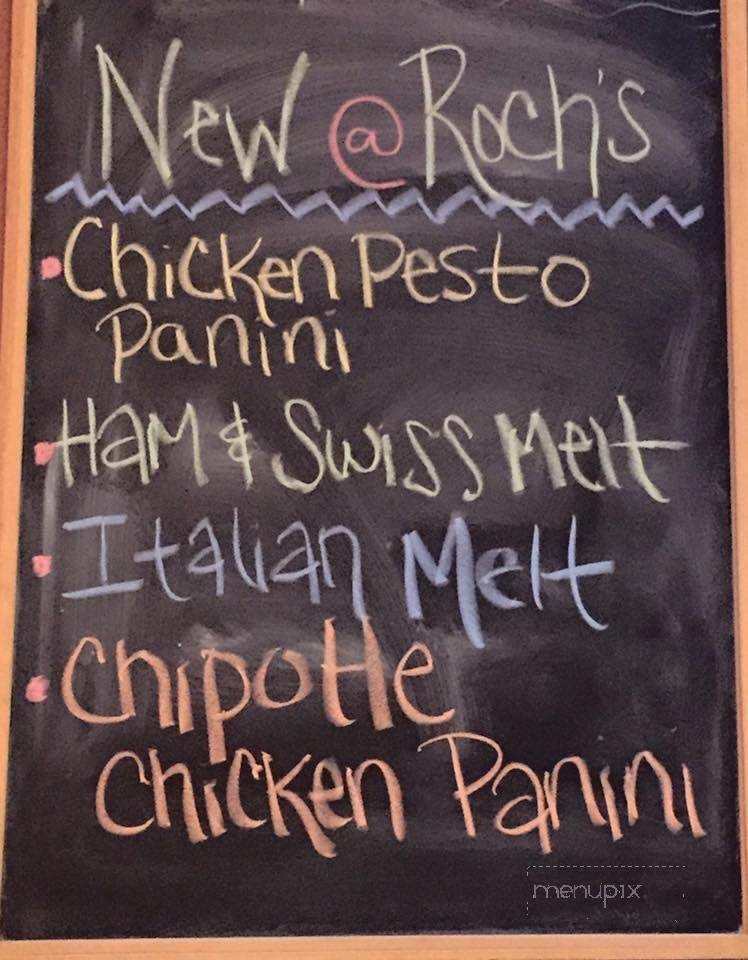 New @ Roch's
• Chicken Pesto
Panini
• Ham & Swiss Melt
• Italian Melt
• Chipotle
Chicken Panini
menupix